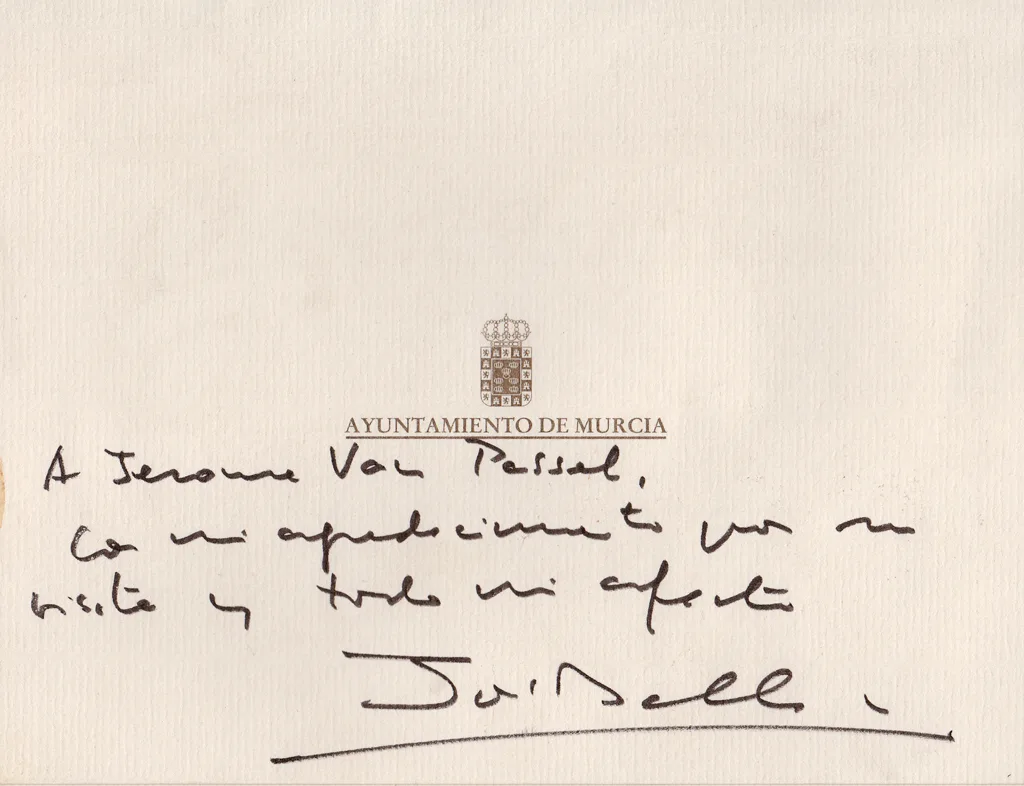 AYUNTAMIENTO DE MURCIA
A Jerome Van Passel,
Con mi agradecimiento por su
visita y todo mi afecto